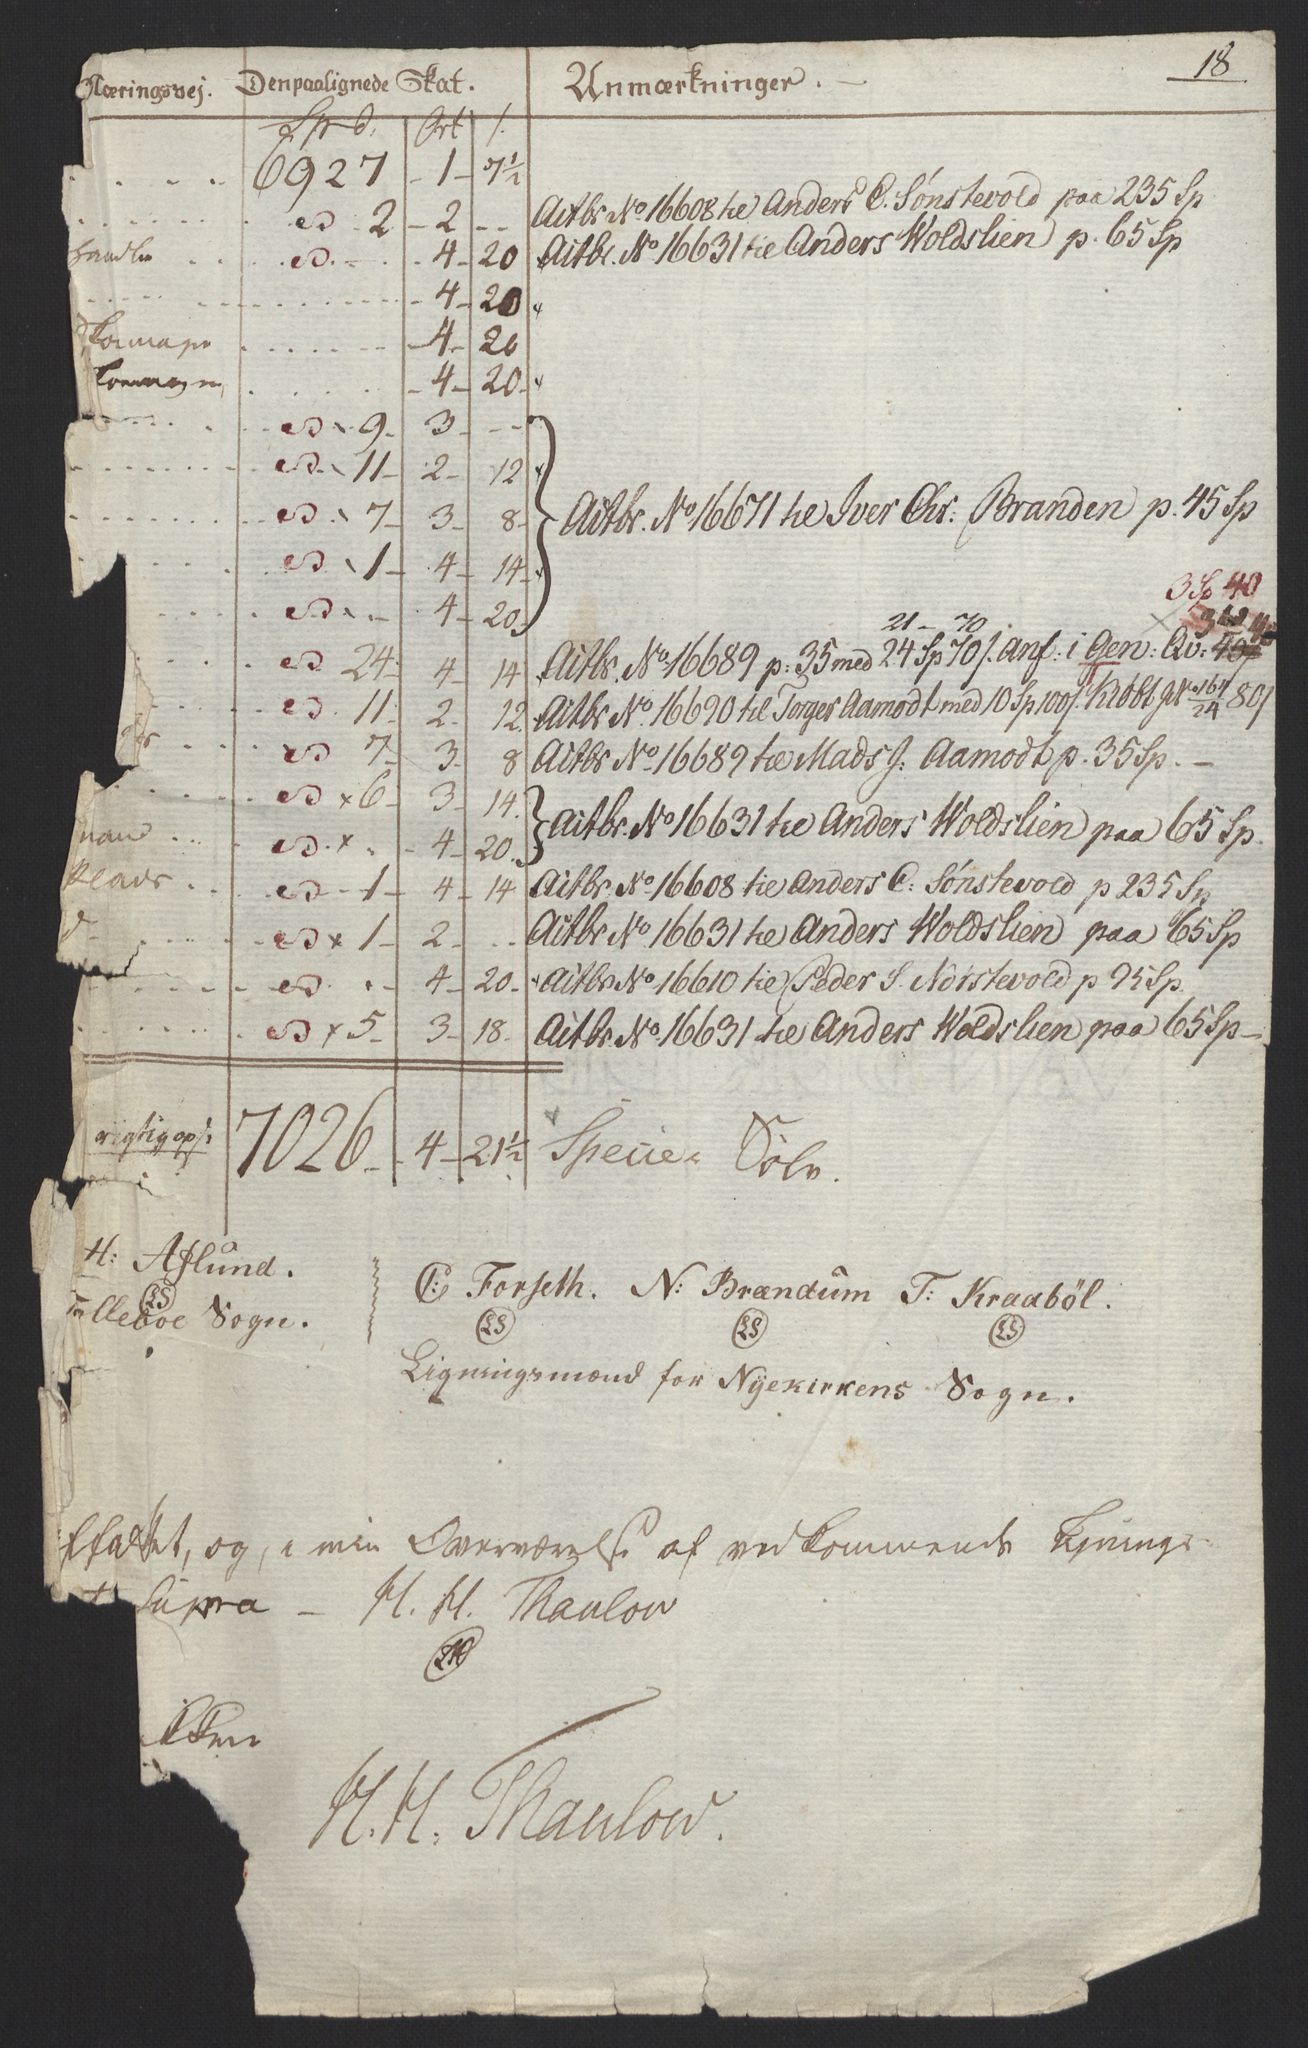 18
Næringsvej. Den paalignede Skat. Anmærkninger.
Spd. Ort /.
6927 - 1 - 7½
2 - 2 - - Actbr. No 16608 til Anders C. Sønstevold paa 235 Sp
handler 4 - 20 Actbr. No 16631 til Anders Woldslien p. 65 Sp
4 - 20
4 - 20
4 - 20
9 - 3 - -
11 - 2 - 12
7 - 3 - 8 Actbr. No 16671 til Iver Chr: Branden p. 45 Sp
1 - 4 - 14
4 - 20
3 Sp 40
21 - 70
24 - 4 - 14 Actbr. No 16689 p: 35 med 24 Sp 70 /. anf: i Gen: Qv:
11 - 2 - 12 Actbr No 16690 til Torger Aamodt med 10 Sp 100 /.
7 - 3 - 8 Actbr No 16689 til Mads J: Aamodt p. 35 Sp. -
× 6 - 3 - 14
× - 4 - 20 Actbr. No 16631 til Anders Woldslien paa 65 Sp.
1 - 4 - 14 Actbr. No 16608 til Anders C: Sønstevold p 235 Sp
× 1 - 2 - - Actbr No 16631 til Anders Woldslien paa 65 Sp
4 - 20 - Actbr No 16610 til Peder S. Nørstevold p 95 Sp.
× 5 - 3 - 18 Actbr No 16631 til Anders Woldslien paa 65 Sp -
rigtig 7026 - 4 - 21½ Specier Sølv.
H: Aslund. C: Forseth. N: Brændum T: Kraabøl.
LS LS LS LS
Sogn.
Ligningsmænd for Nyekirkens Sogn.
og i min Overværelse af vedkommende
Supra - H. H. Thaulow
H. H. Thaulow.